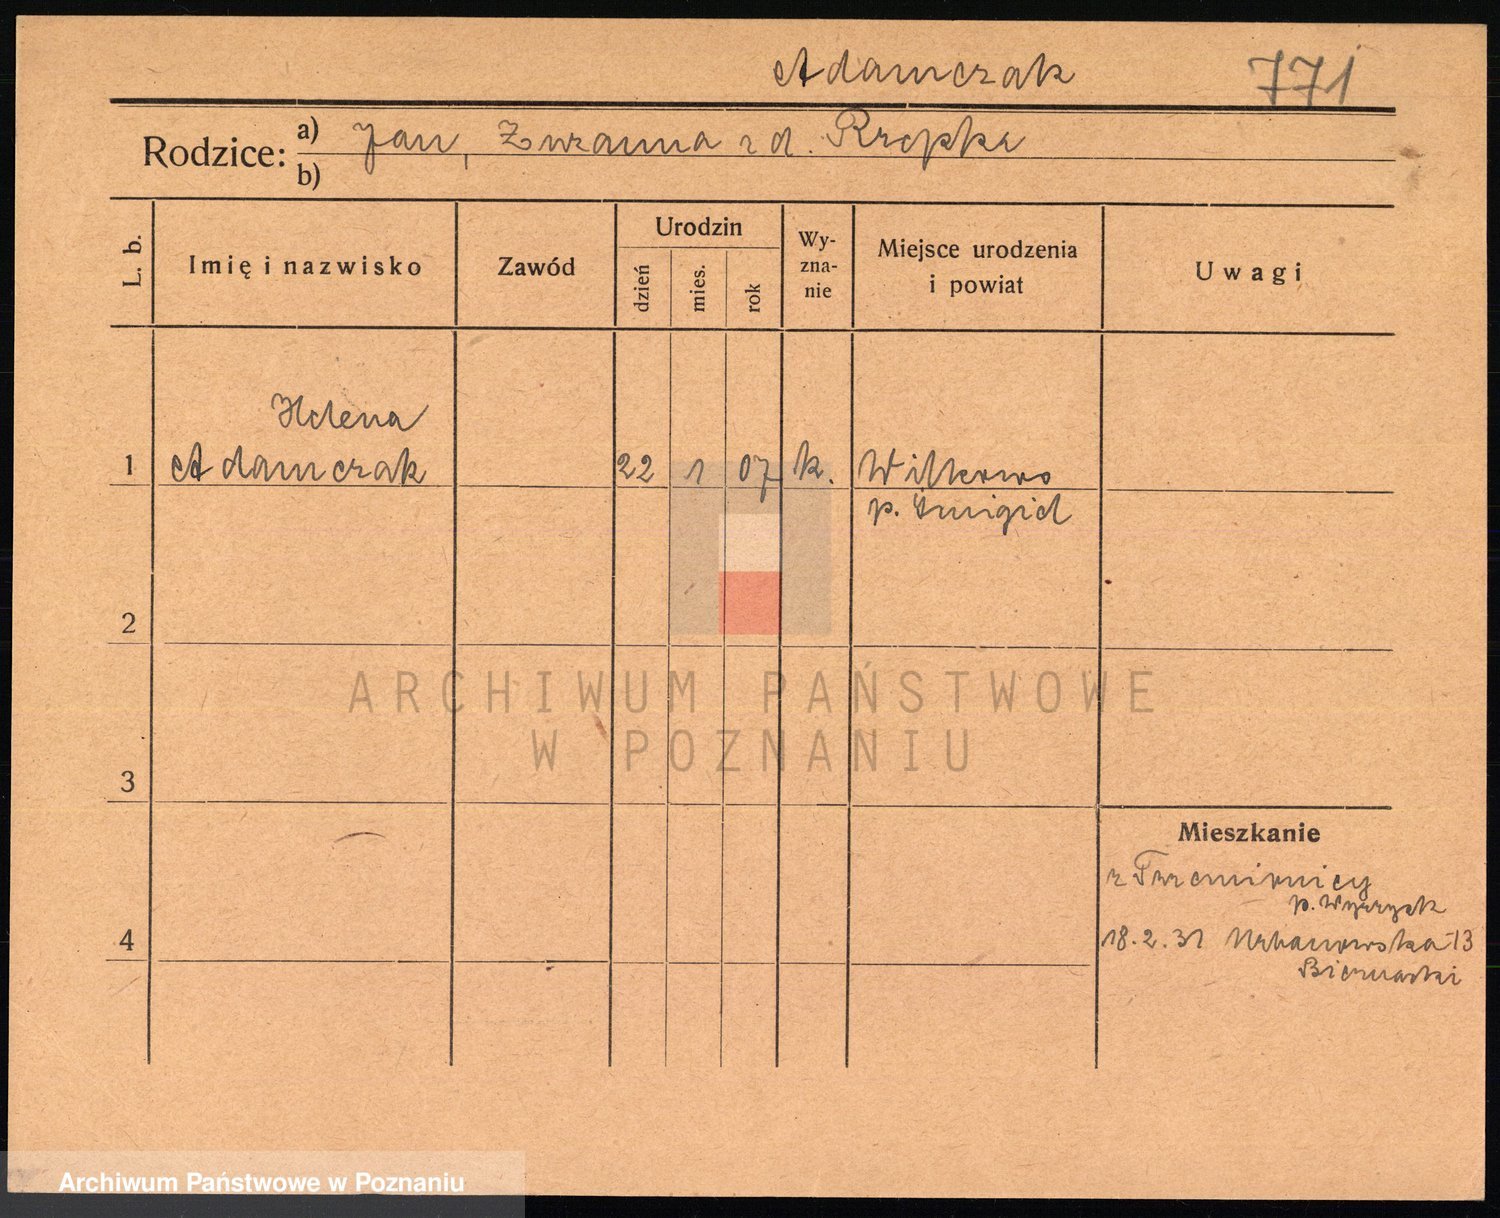 Adamczak 771
Rodzice: a) Jan, Zuzanna z d. Rzepka
b)
L. b. Imię i nazwisko Zawód Urodzin dzień mies. rok Wy-zna-nie Miejsce urodzenia i powiat Uwagi
Helena
1 Adamczak 22 1 07 k. Wilkowo
p. Śmigiel
2
ARCHIWUM PAŃSTWOWE
W POZNANIU
3
Mieszkanie
z
p. Wyrzysk
4 18.2.31 Urbanowska 13
Biernacki
Archiwum Państwowe w Poznaniu